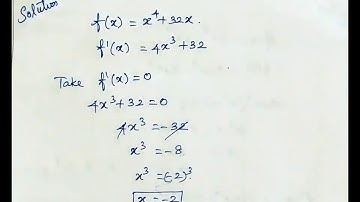 Solution
f(x) = x⁴+32x.
f'(x) = 4x³+32
Take f'(x)=0
4x³+32 = 0
4x³ = -32
x³ = -8
x³ = (-2)³
x = -2